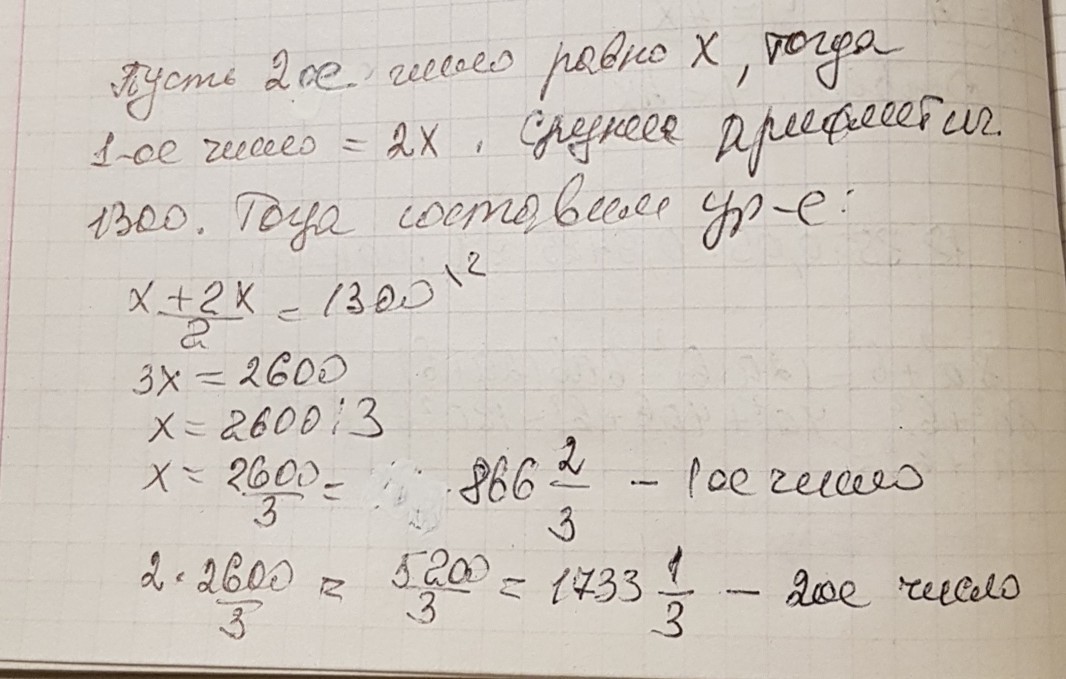 Пусть 2ое число равно X, тогда
1-ое число = 2X. Среднее арифметич.
1300. Тогда составим ур-е:
x+2x/2 = 1300 \2
3x = 2600
x = 2600:3
x = 2600/3 = 866 2/3 – 1ое число
2·2600/3 = 5200/3 = 1733 1/3 – 2ое число